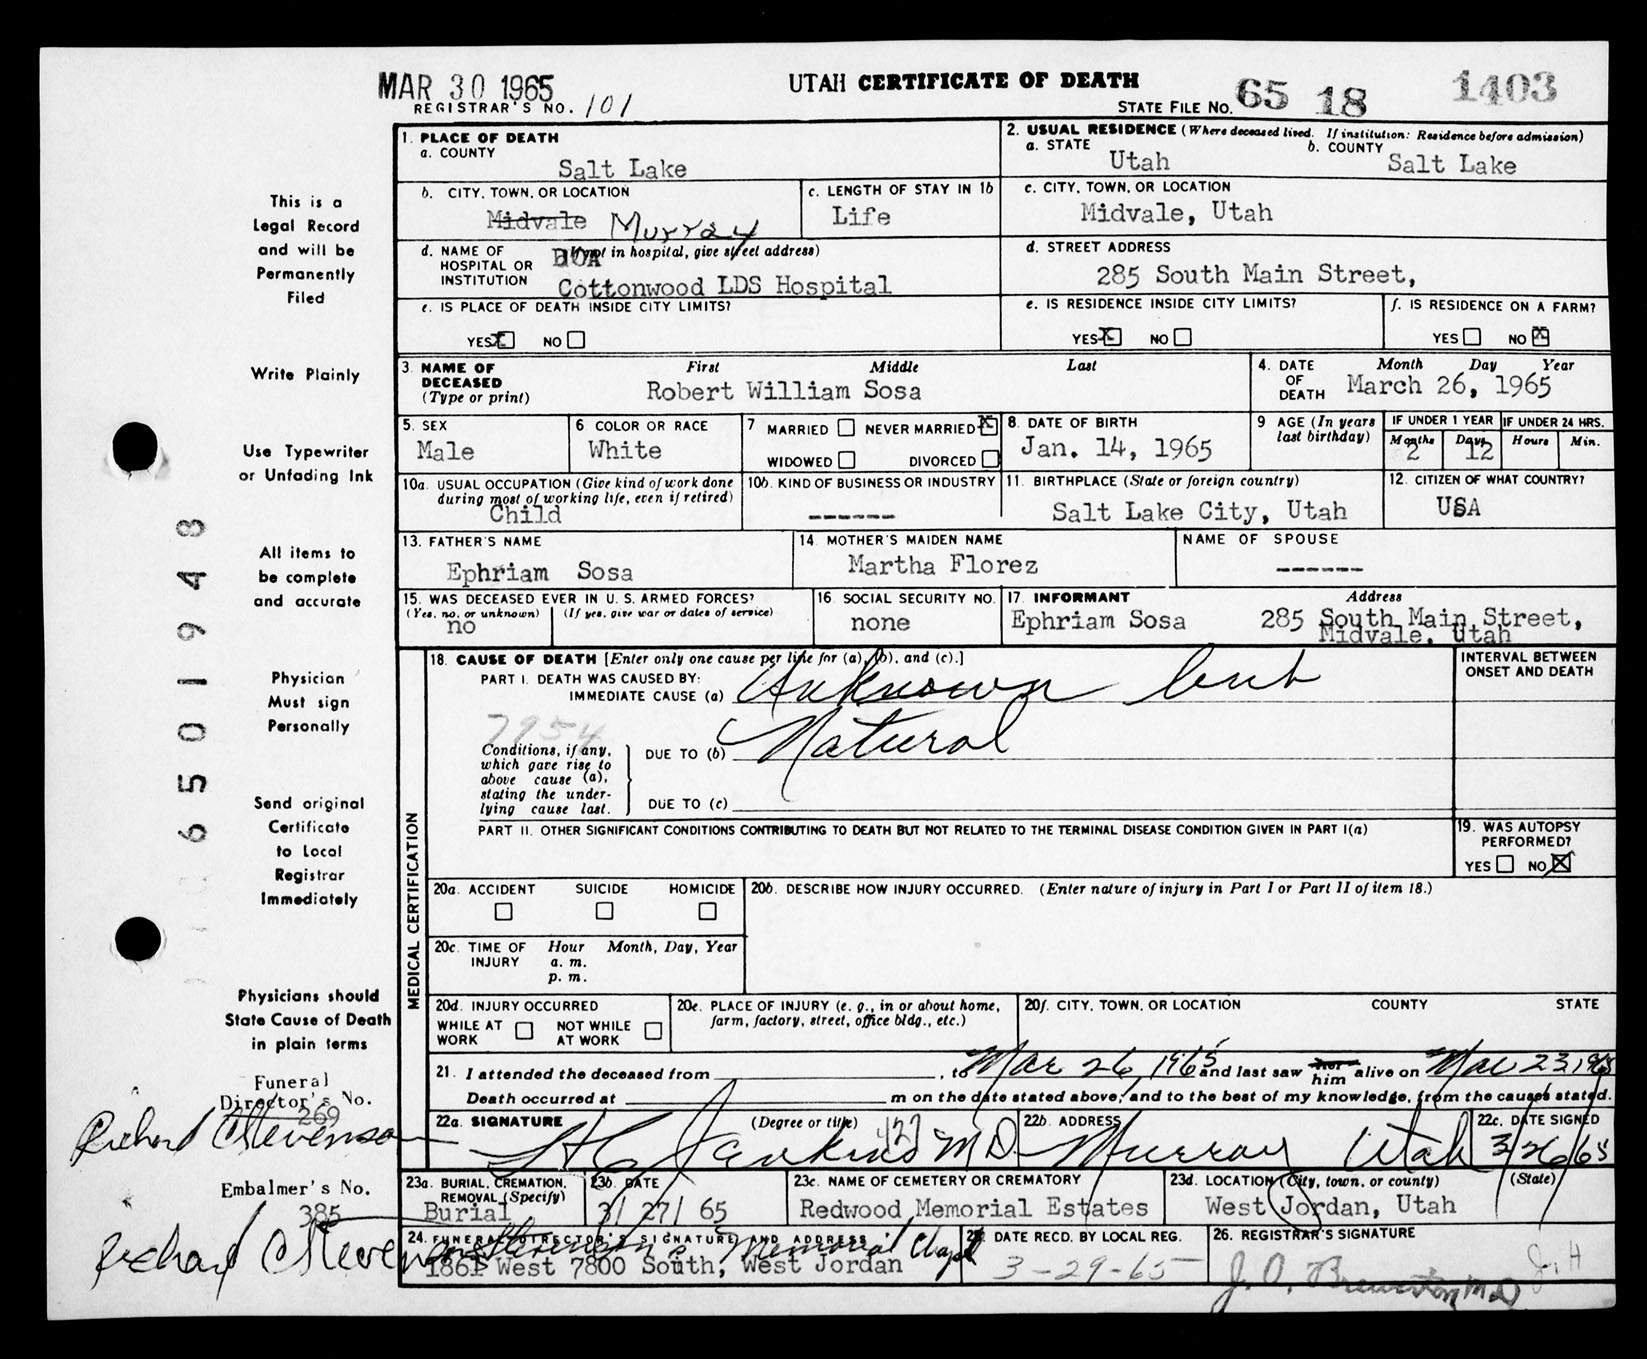 MAR 30 1965
UTAH CERTIFICATE OF DEATH
REGISTRAR'S NO. 101
STATE FILE NO. 65 18 1403
This is a
Legal Record
and will be
Permanently
Filed
Write Plainly
Use Typewriter
or Unfading Ink
All items to
be complete
and accurate
Physician
Must sign
Personally
Send original
Certificate
to Local
Registrar
Immediately
Physicians should
State Cause of Death
in plain terms
Funeral
Director's No.
269
Richard C Stevenson
Embalmer's No.
385
Richard C Stevenson
6501948
1. PLACE OF DEATH
a. COUNTY
Salt Lake
2. USUAL RESIDENCE (Where deceased lived. If institution: Residence before admission)
a. STATE
Utah
b. COUNTY
Salt Lake
b. CITY, TOWN, OR LOCATION
Midvale Murray
c. LENGTH OF STAY IN 1b
Life
c. CITY, TOWN, OR LOCATION
Midvale, Utah
d. NAME OF HOSPITAL OR INSTITUTION
(If not in hospital, give street address)
DOA
Cottonwood LDS Hospital
d. STREET ADDRESS
285 South Main Street,
e. IS PLACE OF DEATH INSIDE CITY LIMITS?
YES X NO
e. IS RESIDENCE INSIDE CITY LIMITS?
YES X NO
f. IS RESIDENCE ON A FARM?
YES NO X
3. NAME OF DECEASED (Type or print)
First Middle Last
Robert William Sosa
4. DATE OF DEATH
Month Day Year
March 26, 1965
5. SEX
Male
6 COLOR OR RACE
White
7 MARRIED NEVER MARRIED X
WIDOWED DIVORCED
8. DATE OF BIRTH
Jan. 14, 1965
9 AGE (In years last birthday)
IF UNDER 1 YEAR
Months Days
2 12
IF UNDER 24 HRS.
Hours Min.
10a. USUAL OCCUPATION (Give kind of work done during most of working life, even if retired)
Child
10b. KIND OF BUSINESS OR INDUSTRY
------
11. BIRTHPLACE (State or foreign country)
Salt Lake City, Utah
12. CITIZEN OF WHAT COUNTRY?
USA
13. FATHER'S NAME
Ephriam Sosa
14. MOTHER'S MAIDEN NAME
Martha Florez
NAME OF SPOUSE
------
15. WAS DECEASED EVER IN U. S. ARMED FORCES?
(Yes, no, or unknown) (If yes, give war or dates of service)
no
16. SOCIAL SECURITY NO.
none
17. INFORMANT
Address
Ephriam Sosa 285 South Main Street,
Midvale, Utah
MEDICAL CERTIFICATION
18. CAUSE OF DEATH [Enter only one cause per line for (a), (b), and (c).]
PART I. DEATH WAS CAUSED BY:
IMMEDIATE CAUSE (a) Unknown but
7954
Conditions, if any, which gave rise to above cause (a), stating the underlying cause last.
DUE TO (b) Natural
DUE TO (c)
INTERVAL BETWEEN ONSET AND DEATH
PART II. OTHER SIGNIFICANT CONDITIONS CONTRIBUTING TO DEATH BUT NOT RELATED TO THE TERMINAL DISEASE CONDITION GIVEN IN PART I(a)
19. WAS AUTOPSY PERFORMED?
YES NO X
20a. ACCIDENT SUICIDE HOMICIDE
20b. DESCRIBE HOW INJURY OCCURRED. (Enter nature of injury in Part I or Part II of item 18.)
20c. TIME OF INJURY
Hour Month, Day, Year
a. m.
p. m.
20d. INJURY OCCURRED
WHILE AT WORK NOT WHILE AT WORK
20e. PLACE OF INJURY (e. g., in or about home, farm, factory, street, office bldg., etc.)
20f. CITY, TOWN, OR LOCATION COUNTY STATE
21. I attended the deceased from , to Mar 26, 1965 and last saw her him alive on Mar 23, 1965
Death occurred at m on the date stated above, and to the best of my knowledge, from the causes stated.
22a. SIGNATURE (Degree or title)
H C Jenkins 427 MD
22b. ADDRESS
Murray Utah
22c. DATE SIGNED
3/26/65
23a. BURIAL, CREMATION, REMOVAL (Specify)
Burial
23b. DATE
3/ 27/ 65
23c. NAME OF CEMETERY OR CREMATORY
Redwood Memorial Estates
23d. LOCATION (City, town, or county) (State)
West Jordan, Utah
24. FUNERAL DIRECTOR'S SIGNATURE AND ADDRESS
Stevenson's Memorial Chapel
1861 West 7800 South, West Jordan
25. DATE RECD. BY LOCAL REG.
3-29-65
26. REGISTRAR'S SIGNATURE
J. H